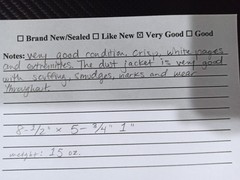 ☐ Brand New/Sealed ☐ Like New ☒ Very Good ☐ Good
Notes: Very good condition, Crisp, white pages
and extremities. The dust jacket is very good
with scuffing, smudges, marks and wear
throughout.
8-1/2" x 5-3/4" 1"
weight: 15 oz.